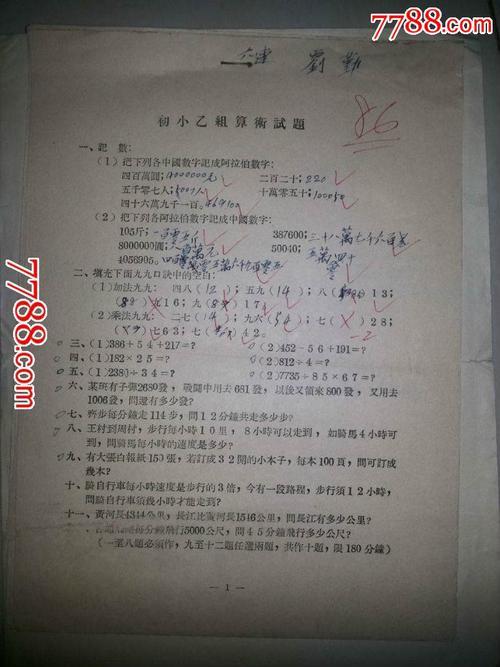 7788.com
六連 劉勤
86
初小乙組算術試題
一、記數:
(1)把下列各中國數字記成阿拉伯數字:
四百萬圓;4000000元 二百二十;220
五千零七人;5007人 十萬零五十;100050
四十六萬九千一百。469100
(2)把下列各阿拉伯數字記成中國數字:
105斤;一百零五斤 387600;三十八萬七千六百
8000000圓;八百萬元 50040;五萬四十
4056905。
二、填充下面九九口訣中的空白:
(1)加法九九:四八(12)五九(14)八( )13;
( )九16;九(8)17。
(2)乘法九九:二七(14)九六(54)七( )28;
( )七63;七( )42。
-2
三、(1)386+54+217=? (2)452-56+191=?
四、(1)182×25=? (2)812÷4=?
五、(1)2380÷34=? (2)7735÷85×67=?
六、某班有子彈2689發,戰鬪中用去681發,以後又領來800發,又用去
1006發,問還有多少發?
七、齊步每分鐘走114步,問12分鐘共走多少步?
八、王村到周村,步行每小時10里,8小時可以走到,如騎馬4小時可
到,問騎馬每小時的速度是多少?
九、有大張白報紙150張,若訂成32開的小本子,每本100頁,問可訂成
幾本?
十、騎自行車每小時速度是步行的3倍,今有一段路程,步行須12小時,
問騎自行車須幾小時才能走到?
十一、黃河長4344公里,長江比黃河長1546公里,問長江有多少公里?
每分鐘飛行5000公尺,問45分鐘飛行多少公尺?
(一至八題必須作,九至十二題任選兩題,共作十題,限180分鐘)
— 1 —
7788.com
7788.com